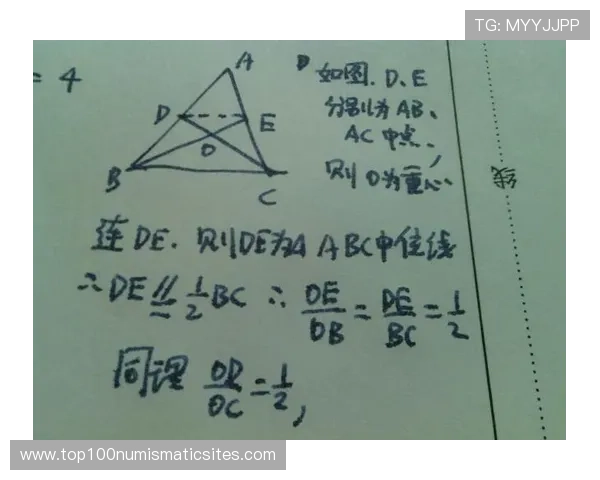 TG: MYYJJPP
= 4
A
D
E
O
B
C
如图.D、E
分别为AB、
AC中点,
则O为重心
线
连DE.则DE为△ABC中位线
∴DE∥=1/2BC ∴OE/OB=DE/BC=1/2
同理 OD/OC=1/2,
www.top100numismaticsites.com